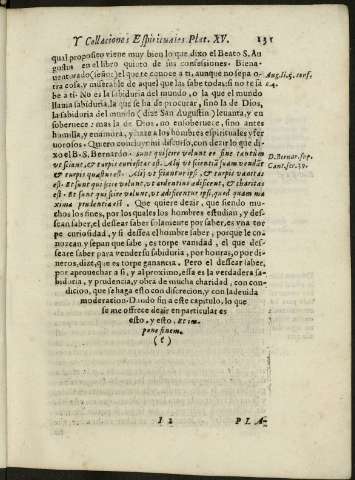 Y Collaciones Espirituales. Plat. XV. 131
qual proposito viene muy bien lo que dixo el Beato S. Au
gustin en el libro quinto de sus confesiones. Biena-
uenturado (señor) el que te conoce a ti, aunque no sepa o-
tra cosa, y miserable de aquel que las sabe todas, si no te sa
be a ti. No es la sabiduria del mundo, o la que el mundo
llama sabiduria, la que se ha de procurar, sino la de Dios,
la sabiduria del mundo (dize San Augustin) leuanta, y en
soberuece: mas la de Dios, no ensoberuece, sino antes
humilla, y enamora, y haze a los hombres espirituales y fer
uorosos. Quiero concluyr mi discurso, con dezir lo que di-
xo el B. S. Bernardo. Sunt qui scire velunt eo fine tantùm
vt sciant, & turpis curiositas est. Alij vt scientiã suam vendãt
& turpis quæstus est. Alij vt sciantur ipsi, & turpis vanitas
est. Et sunt qui scire velunt, vt ædificent, & charitas
est. Et sunt qui scire velunt, vt ædificentur ipsi, quod quam ma
xima prudentia est. Que quiere dezir, que siendo mu-
chos los fines, por los quales los hombres estudian, y des-
sean saber, el dessear saber solamente por saber, es vna tor
pe curiosidad, y si dessea el hombre saber, porque le co-
nozcan y sepan que sabe, es torpe vanidad, el que des-
seare saber para vender su sabiduria, por honras, o por di-
neros, dize, que es torpe ganancia. Pero el dessear saber,
por aprouechar a si, y al proximo, essa es la verdadera sa-
biduria, y prudencia, y obra de mucha charidad, con con-
dicion, que se haga esto con discrecion, y con la deuida
moderacion. Dando fin a este capitulo, lo que
se me offrece dezir en particular es
esto, y esto. Et im
pono finem.
(∴)
Aug. li. 5. cõf.
c. 4.
D. Bernar. sup.
Cant. ser. 36.
I 2 PLA-